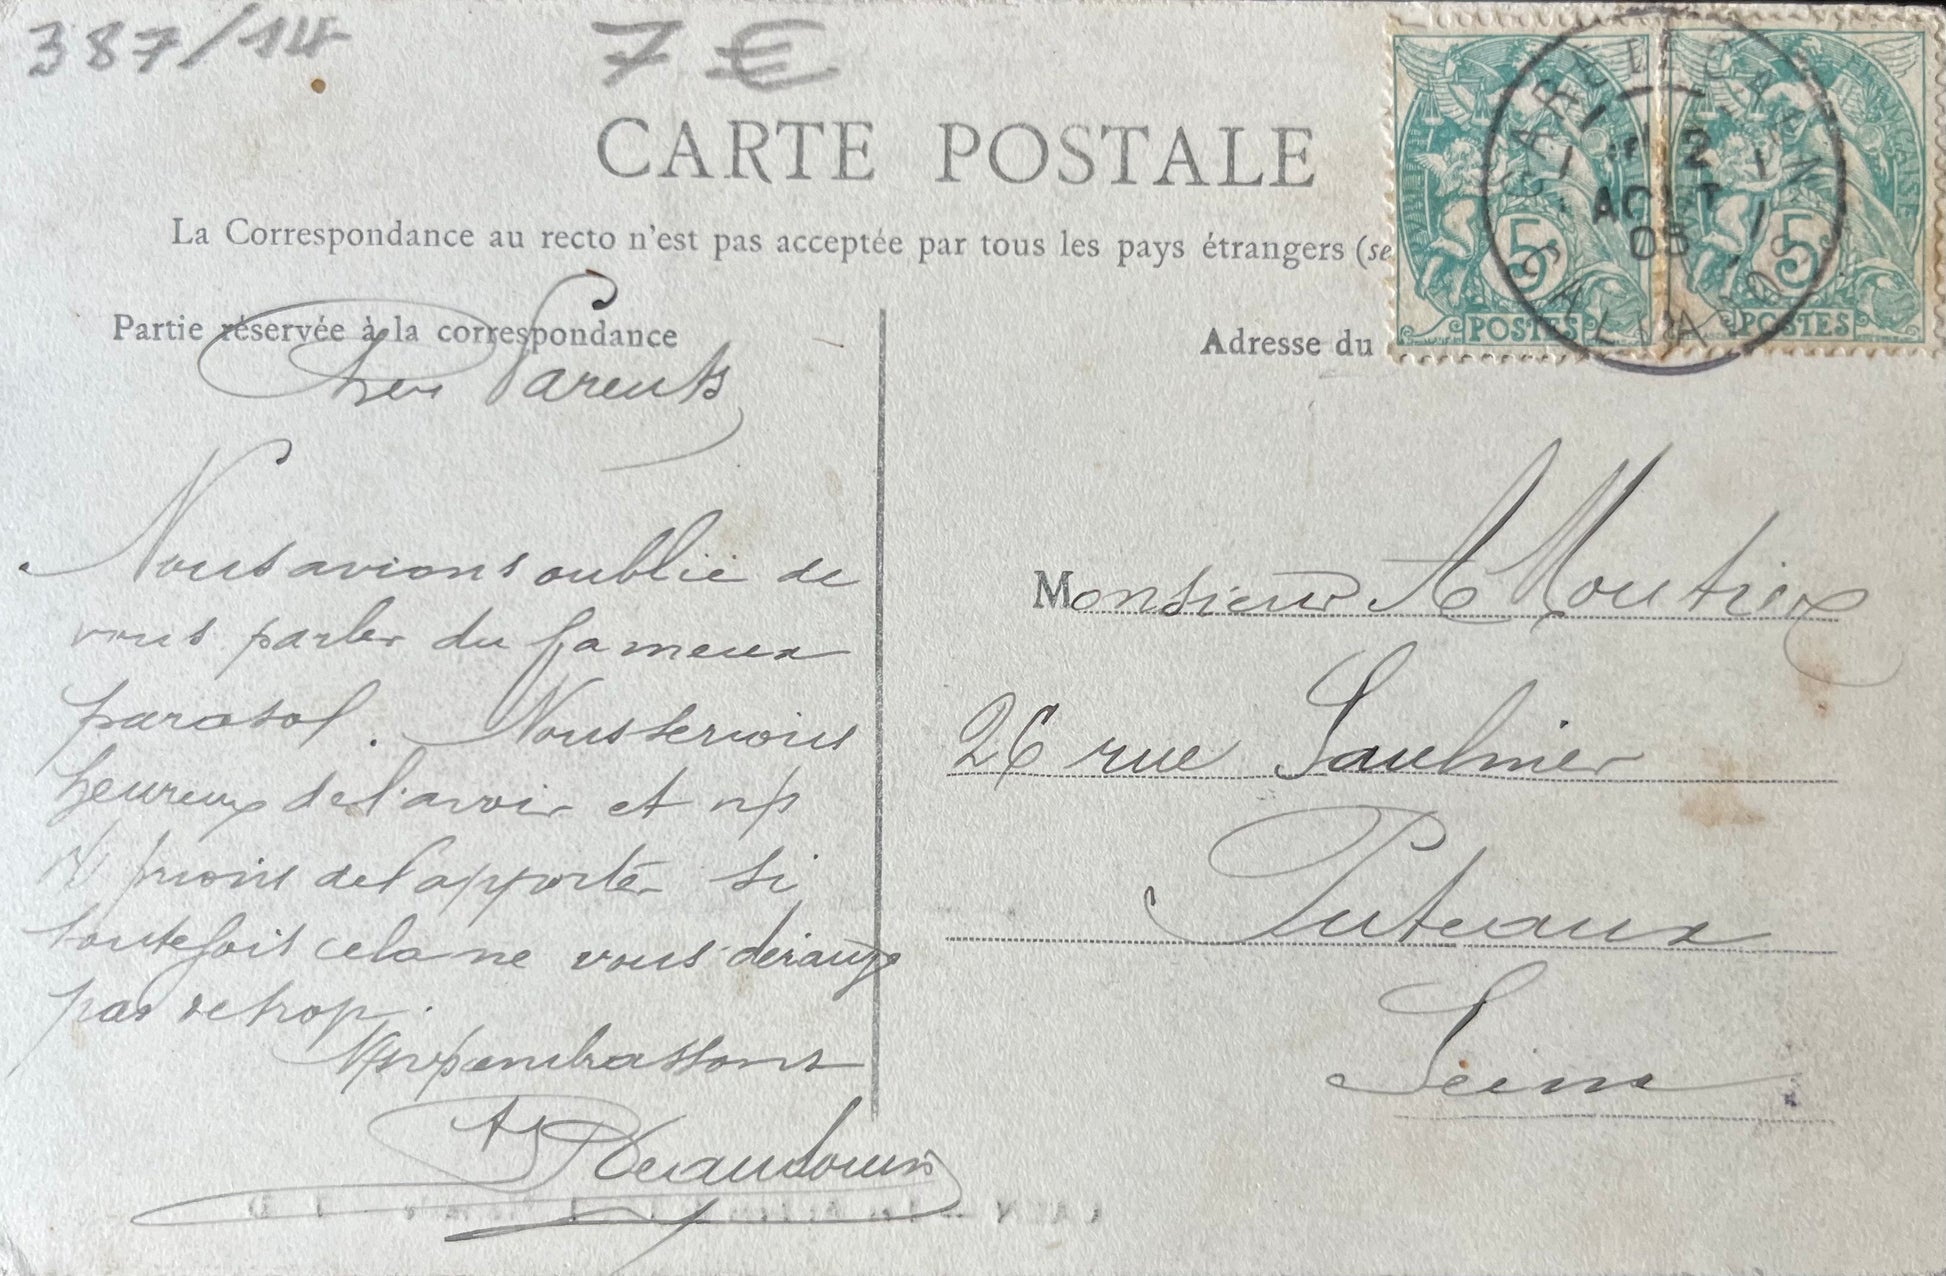 387/14
7 €
CARTE POSTALE
La Correspondance au recto n'est pas acceptée par tous les pays étrangers (se
Partie réservée à la correspondance
Adresse du
5
POSTES
5
POSTES
2
AOUT
05
CALVADOS
Chers Parents
Nous avions oublié de
vous parler du fameux
parasol. Nous serions
heureux de l'avoir et
prions de l'apporter si
toutefois cela ne vous dérange
pas de trop.
embrassons
Monsieur A Moutier
26 rue Saulnier
Puteaux
Seine